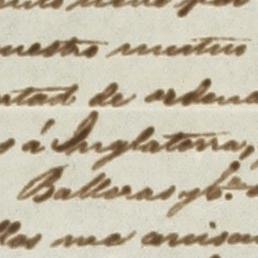 nuestro mutuo
rtad de ordena
s á Inglaterra,
Balleras y C.ª
llos me avisan